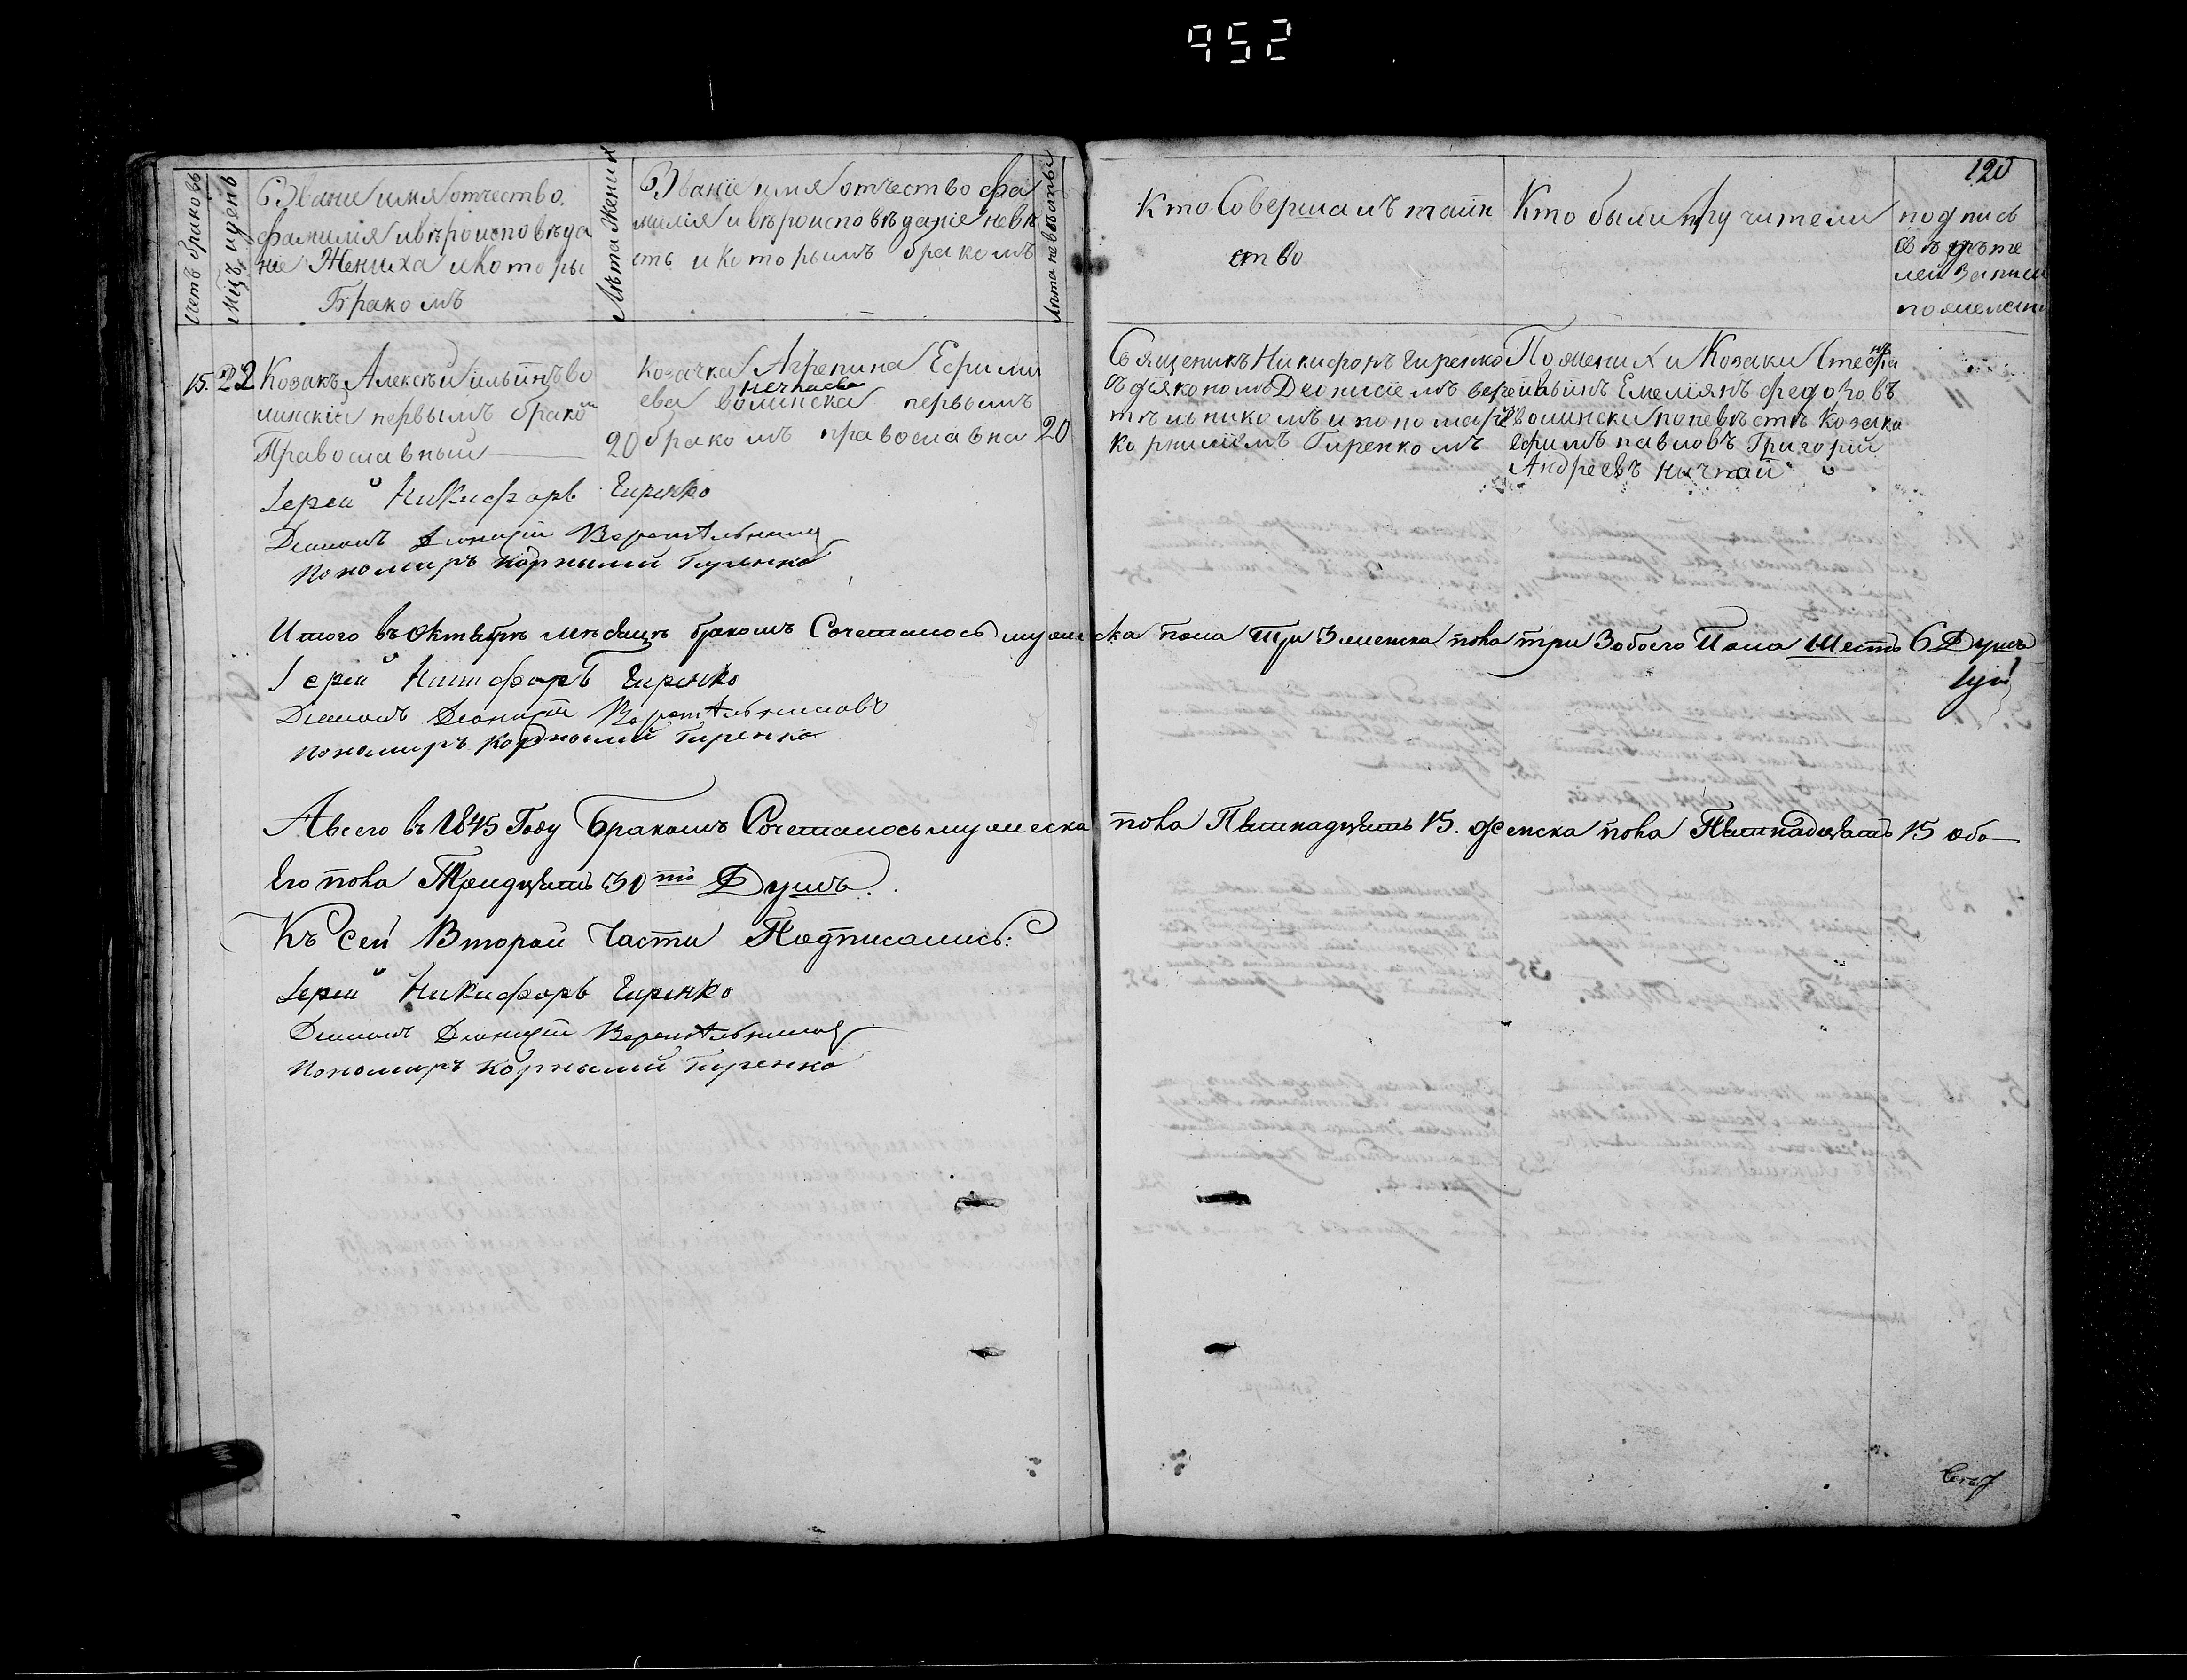 952
120
Счетъ браковъ
Мцъ и день
Званіе имя отчество
фамилія и вѣроисповѣда
ніе Жениха и Которы
Бракомъ
Лѣта Жениха
Званіе имя отчество фа
милія и вѣроисповѣданіе невѣ
стъ и Которымъ бракомъ
Лѣта невѣсты
Кто Совершалъ таин
ство
Кто были поручители
подпись
свѣдѣте
лей Записи
по желан
15. 22 Козакъ Алексѣй ильинъ во
линскій первымъ брако
Православный
20
Козачка Агрепина Ефими
нечпаева
ева волинска первымъ
бракомъ православна
20
Священикъ Никифоръ Гиренко
съ діякономъ Деонисіемъ верей
тельникомъ и пономарем
корниліемъ Гиренкомъ
По жених и Козаки Стефа
нъ
павинъ Емеліянъ федоровъ
волински по невѣстѣ Козаки
Ефимъ павловъ Григорій
Андреевъ нечпай
Іерей Никифоръ Гиренко
Діаконъ Діонисій Веретельников
Пономаръ Корнилий Гиренко
Итого въ октябрѣ мѣсяцѣ бракомъ Сочеталось мужеска пола три 3 женска пола три 3 обоего Пола Шесть 6 Душъ
Іерей Никифоръ Гиренко
Діаконъ Діонисій Веретельниковъ
Пономаръ Корнилий Гиренко
А всего въ 1845 Году бракомъ Сочеталось мужеска пола Пятнадцать 15. женска пола Пятнадцать 15 обо—
его пола Тридцать 30ть Душъ.
Къ Сей Второй Части Подписались:
Іерей Никифоръ Гиренко
Діаконъ Діонисій Веретельников
Пономаръ Корнилий Гиренко